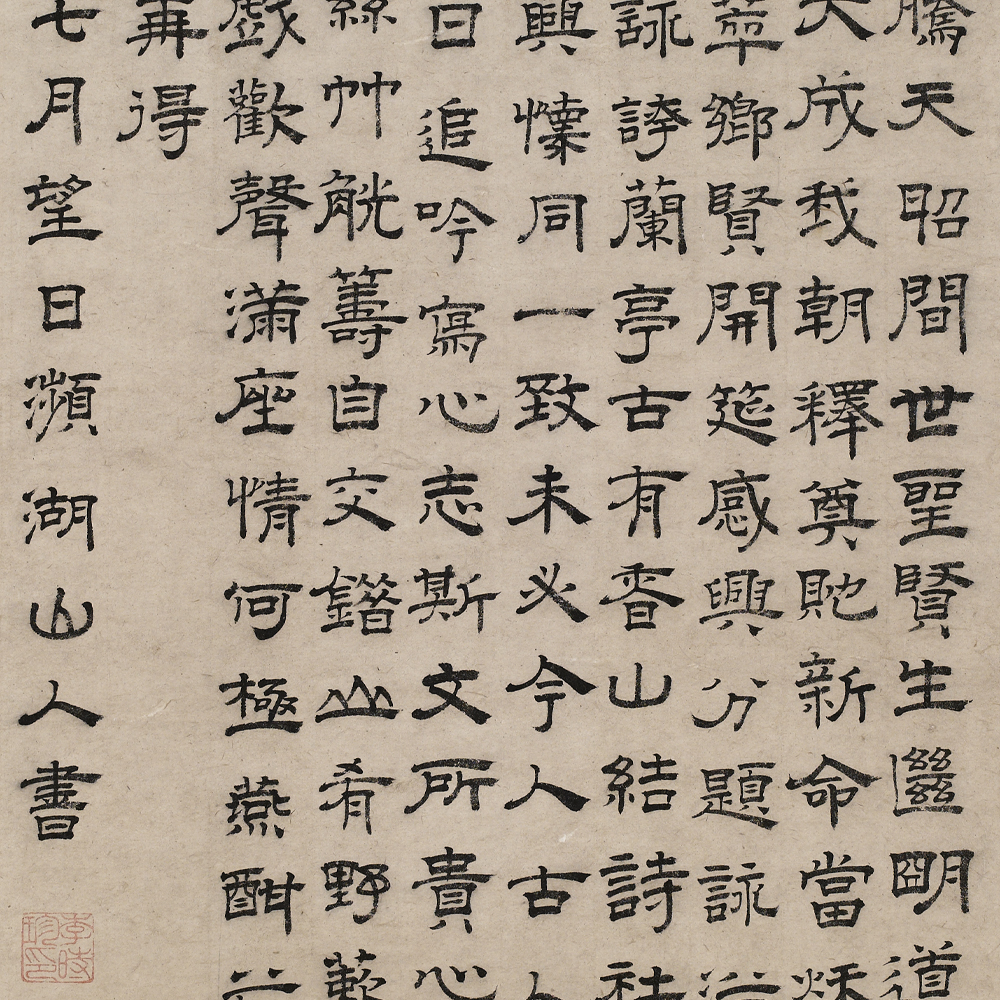 騰天昭間世聖賢生繼明道
成我朝釋奠貤新命當
萃鄉賢開筵感興分題詠
詠誇蘭亭古有香山結詩社
興懷同一致未必今人古人
日追吟寫心志斯文所貴心
絲竹觥籌自交錯山肴野蔌
戲歡聲滿座情何極燕酣
再得
七月望日瀕湖山人書
李時珍印